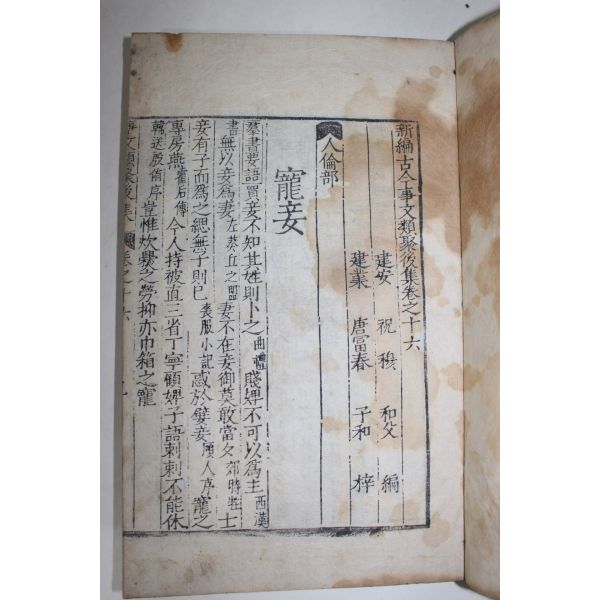 新編古今事文類聚後集卷之十六
建安 祝穆 和父 編
建業 唐富春 子和 梓
人倫部
寵妾
羣書要語買妾不知其姓則卜之曲禮賤婢不可以為主西漢
書無以妾為妻左葵丘之盟妻不在妾御莫敢當夕郊時牲士
妾有子而為之緦無子則已喪服小記惑於嬖妾碩人序寵之
專房燕霍后傳今人持被直三省丁寧顧婢子語刺刺不能休
韓送殷侑序豈惟炊爨之勞抑亦巾箱之寵
事文類聚後集 卷之十六